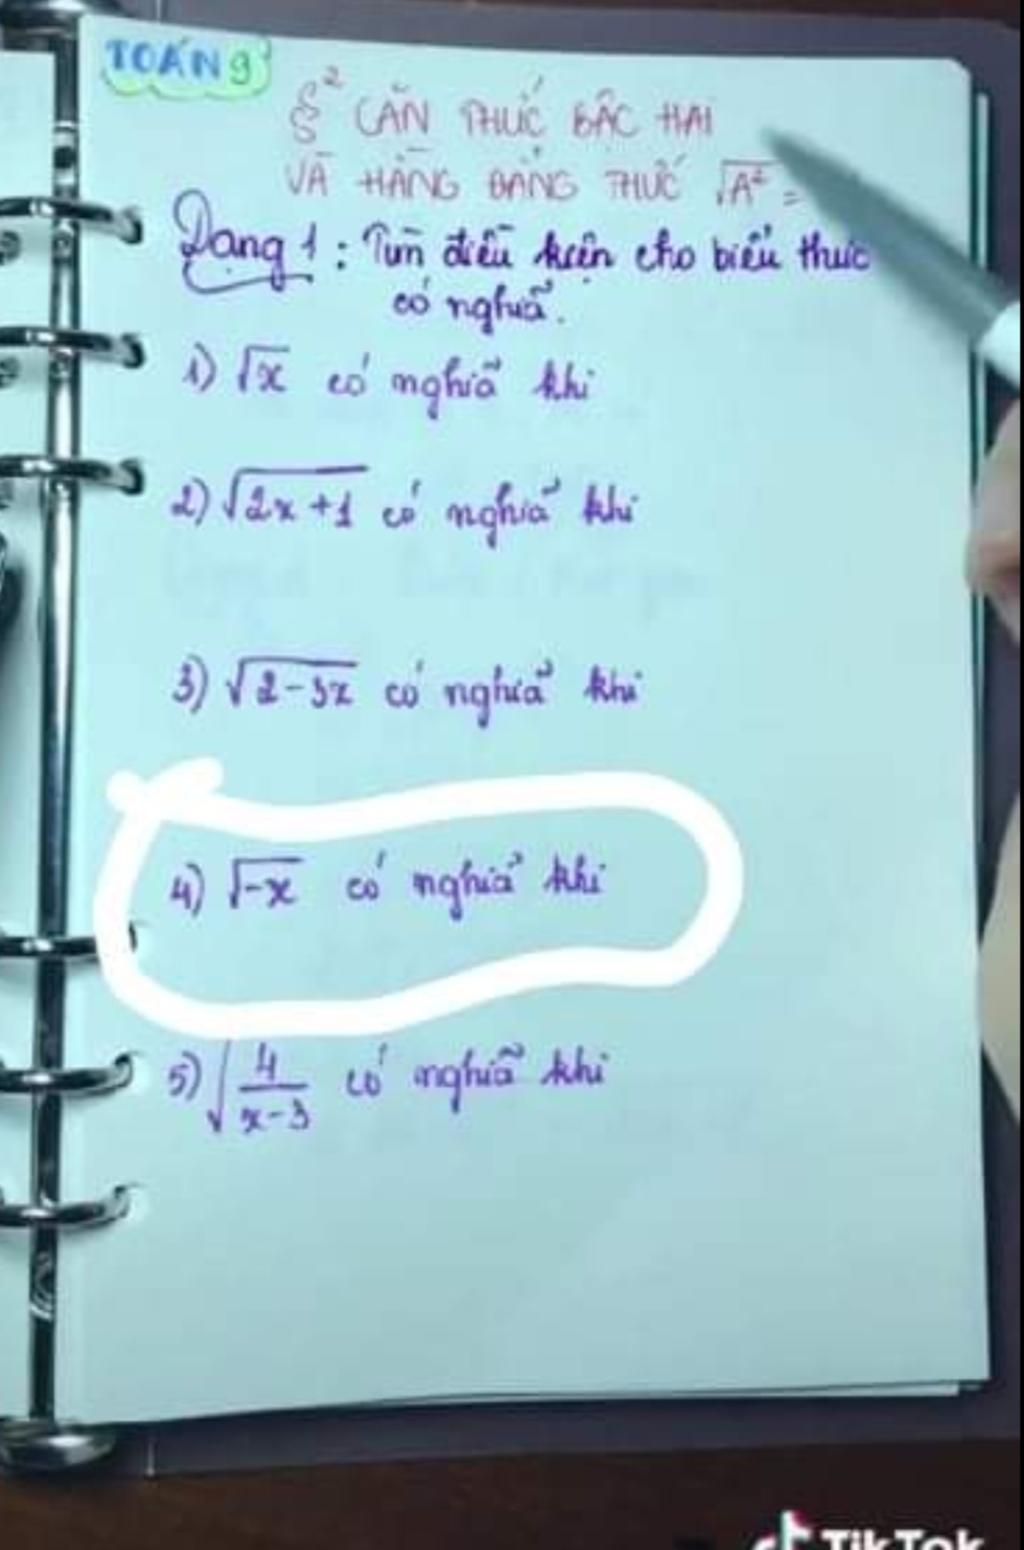 TOÁN 9
§2 CĂN THỨC BẬC HAI
VÀ HẰNG ĐẲNG THỨC √A² =
Dạng 1 : Tìm điều kiện cho biểu thức
có nghĩa.
1) √x có nghĩa khi
2) √2x+1 có nghĩa khi
3) √2-3x có nghĩa khi
4) √-x có nghĩa khi
5) √4/x-3 có nghĩa khi
TikTok